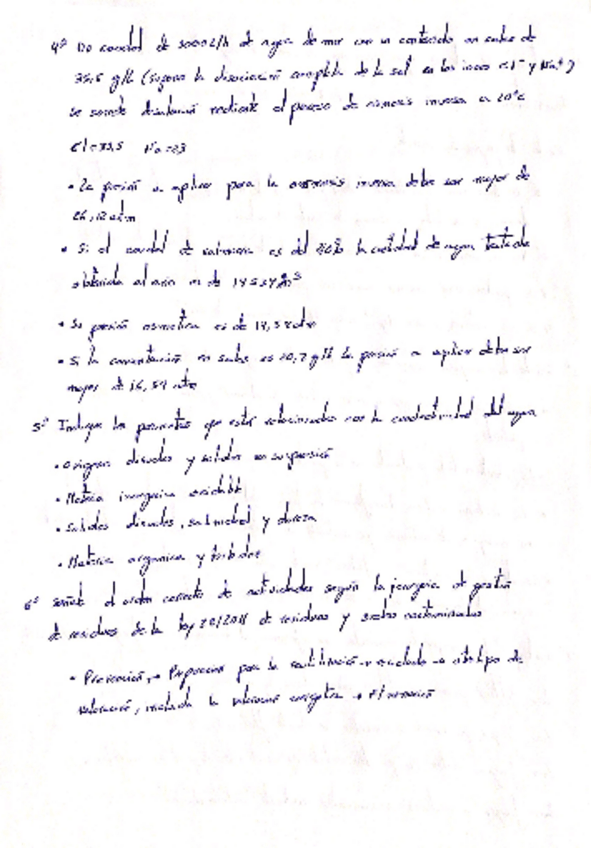 4º Un caudal de 3000 L/h de agua de mar con un contenido en sales de
35,5 g/l (supone la disociación completa de la sal en los iones Cl⁻ y Na⁺)
se somete mediante el proceso de osmosis inversa a 20ºC
Cl=35,5 Na=23
• La presión a aplicar para la osmosis inversa debe ser mayor de
atm
• Si el caudal de salmuera es del la cantidad de agua tratada
obtenida al año es de m³
• Su presión osmotica es de atm
• Si la concentración en sales es 10,7 g/l la presión a aplicar debe ser
mayor de 16,54 atm
5º Indique los parámetros que están relacionados con la conductividad del agua
• disueltos y solidos en suspensión
• Materia inorganica
• Solidos disueltos, salinidad y dureza
• Materia organica y turbidez
6º Señale el orden correcto de actividades según la jerarquia de gestión
de residuos de la ley de residuos y suelos contaminados
• Prevención, → Preparación para la reutilización → reciclado → otro tipo de
valoración, incluida la valoración energética → Eliminación